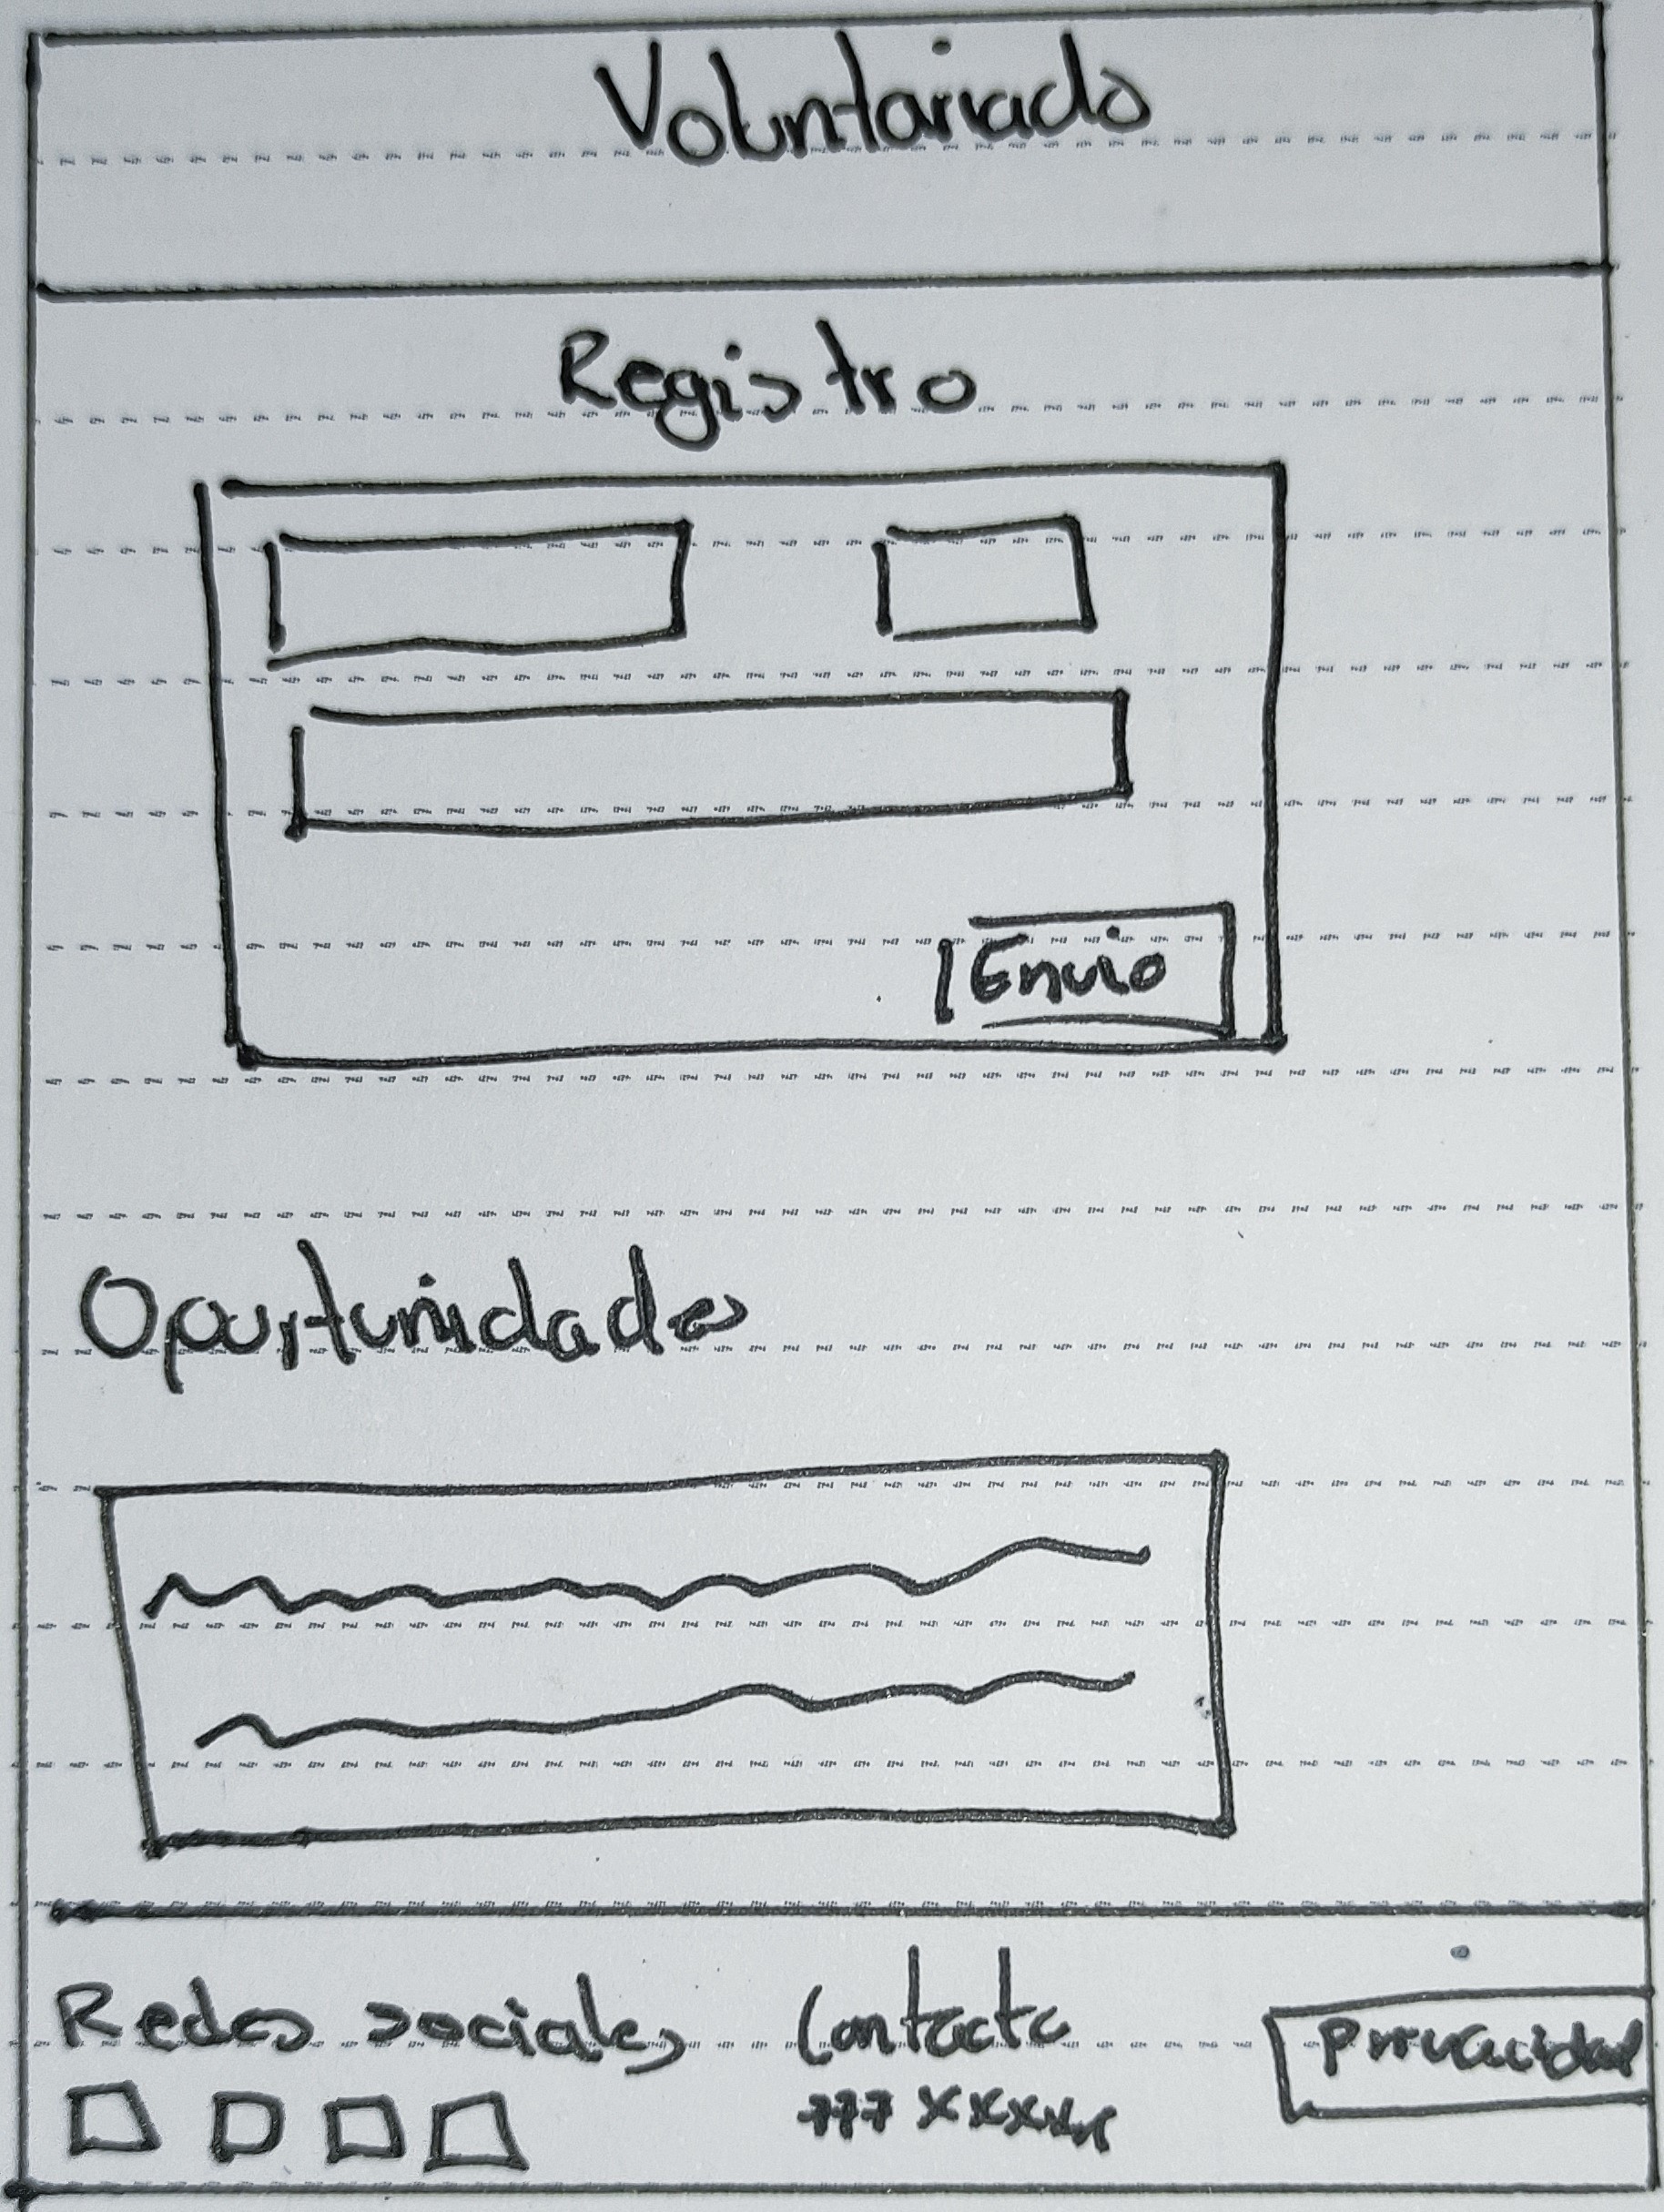 Voluntariado
Registro
Envio
Oportunidades
Redes sociales
Contacto
777 XXXXX
Privacidad